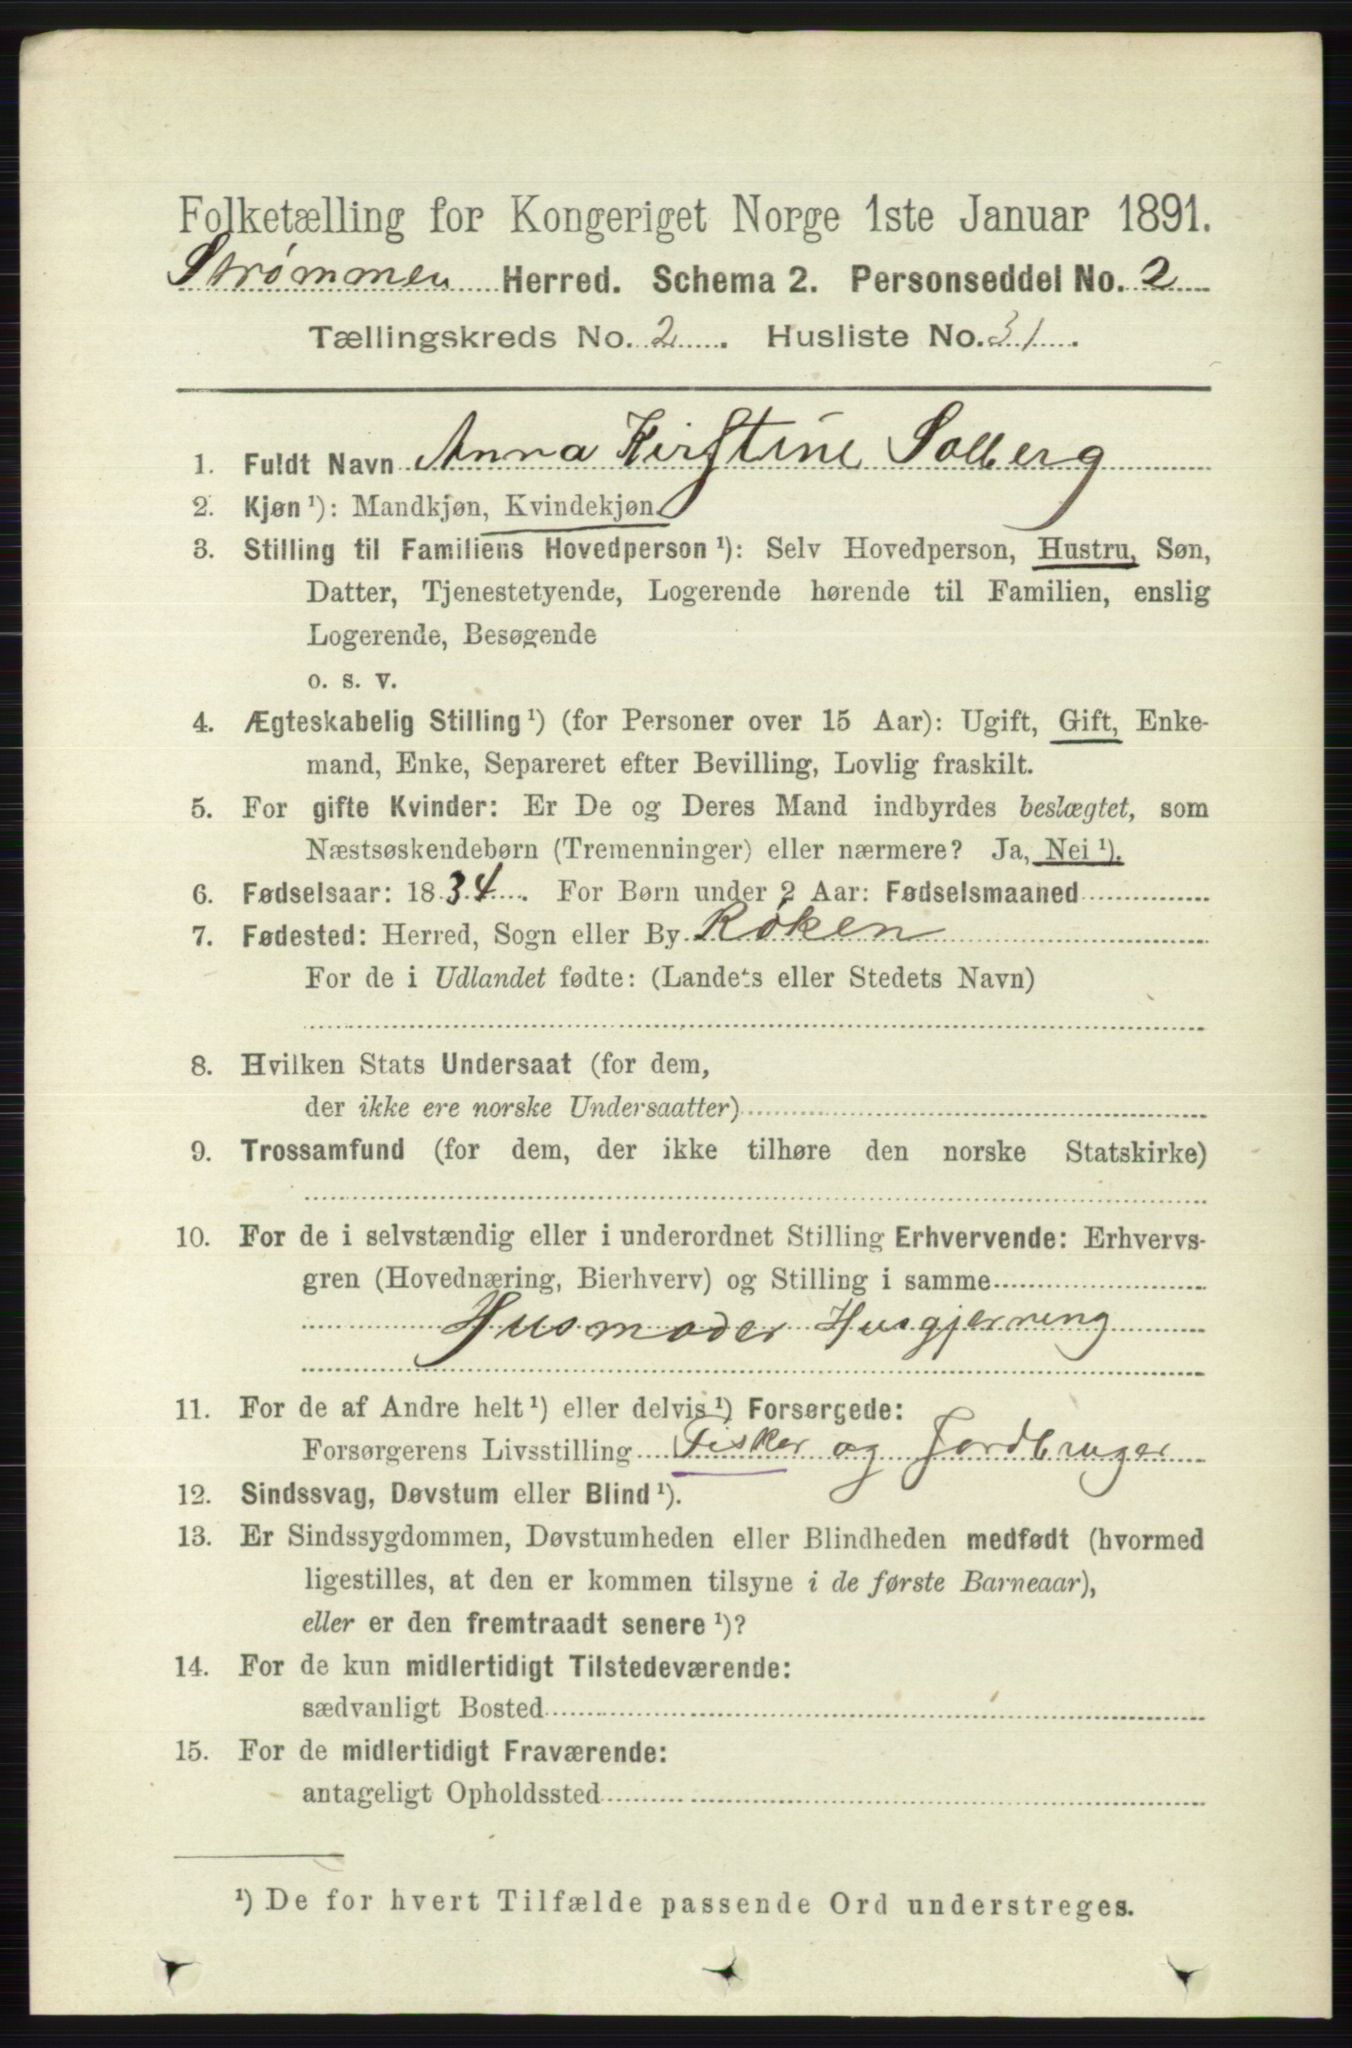 Folketælling for Kongeriget Norge 1ste Januar 1891.
Strømmen Herred. Schema 2. Personseddel No. 2
Tællingskreds No. 2. Husliste No. 31.
1. Fuldt Navn Anna Kirstine Solberg
2. Kjøn ¹): Mandkjøn, Kvindekjøn
3. Stilling til Familiens Hovedperson ¹): Selv Hovedperson, Hustru, Søn,
Datter, Tjenestetyende, Logerende hørende til Familien, enslig
Logerende, Besøgende
o. s. v.
4. Ægteskabelig Stilling ¹) (for Personer over 15 Aar): Ugift, Gift, Enke-
mand, Enke, Separeret efter Bevilling, Lovlig fraskilt.
5. For gifte Kvinder: Er De og Deres Mand indbyrdes beslægtet, som
Næstsøskendebørn (Tremenninger) eller nærmere? Ja, Nei ¹).
6. Fødselsaar: 1834. For Børn under 2 Aar: Fødselsmaaned
7. Fødested: Herred, Sogn eller By Røken
For de i Udlandet fødte: (Landets eller Stedets Navn)
8. Hvilken Stats Undersaat (for dem,
der ikke ere norske Undersaatter)
9. Trossamfund (for dem, der ikke tilhøre den norske Statskirke)
10. For de i selvstændig eller i underordnet Stilling Erhvervende: Erhvervs-
gren (Hovednæring, Bierhverv) og Stilling i samme
Husmoder Husgjerning
11. For de af Andre helt ¹) eller delvis ¹) Forsørgede:
Forsørgerens Livsstilling Fisker og Jordbruger
12. Sindssvag, Døvstum eller Blind ¹).
13. Er Sindssygdommen, Døvstumheden eller Blindheden medfødt (hvormed
ligestilles, at den er kommen tilsyne i de første Barneaar),
eller er den fremtraadt senere ¹)?
14. For de kun midlertidigt Tilstedeværende:
sædvanligt Bosted
15. For de midlertidigt Fraværende:
antageligt Opholdssted
¹) De for hvert Tilfælde passende Ord understreges.